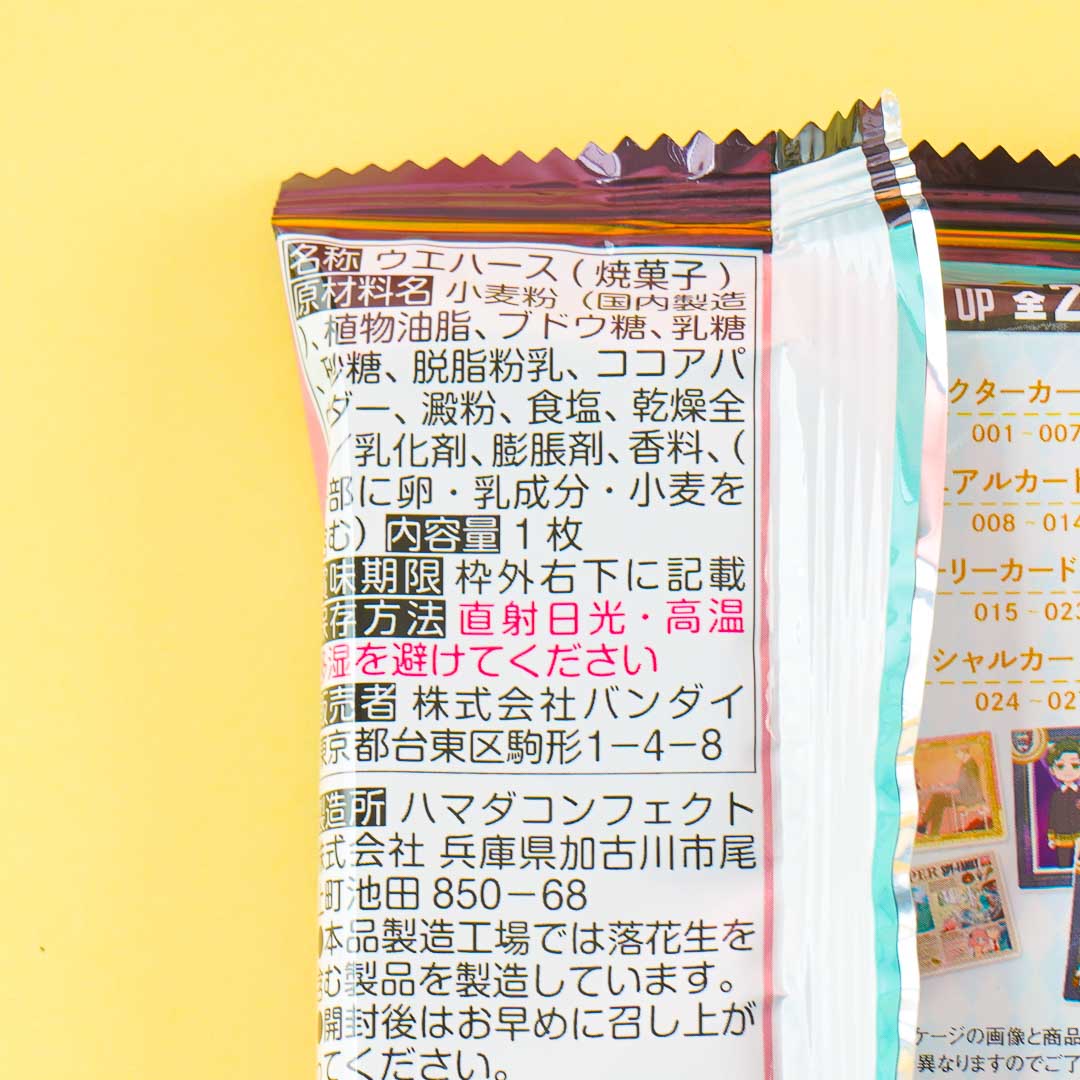 名称 ウエハース(焼菓子)
原材料名 小麦粉(国内製造
)、植物油脂、ブドウ糖、乳糖
、砂糖、脱脂粉乳、ココアパ
ダー、澱粉、食塩、乾燥全
/乳化剤、膨脹剤、香料、(
部に卵・乳成分・小麦を
む) 内容量 1枚
味期限 枠外右下に記載
存方法 直射日光・高温
湿を避けてください
売者 株式会社バンダイ
東京都台東区駒形1-4-8
造所 ハマダコンフェクト
式会社 兵庫県加古川市尾
町池田850-68
●本品製造工場では落花生を
む製品を製造しています。
●開封後はお早めに召し上が
てください。
UP 全2
クターカー
001~007
アルカード
008~014
ーリーカード
015~023
シャルカー
024~02
PER SPY×FAMILY
ケージの画像と商品
異なりますのでご了